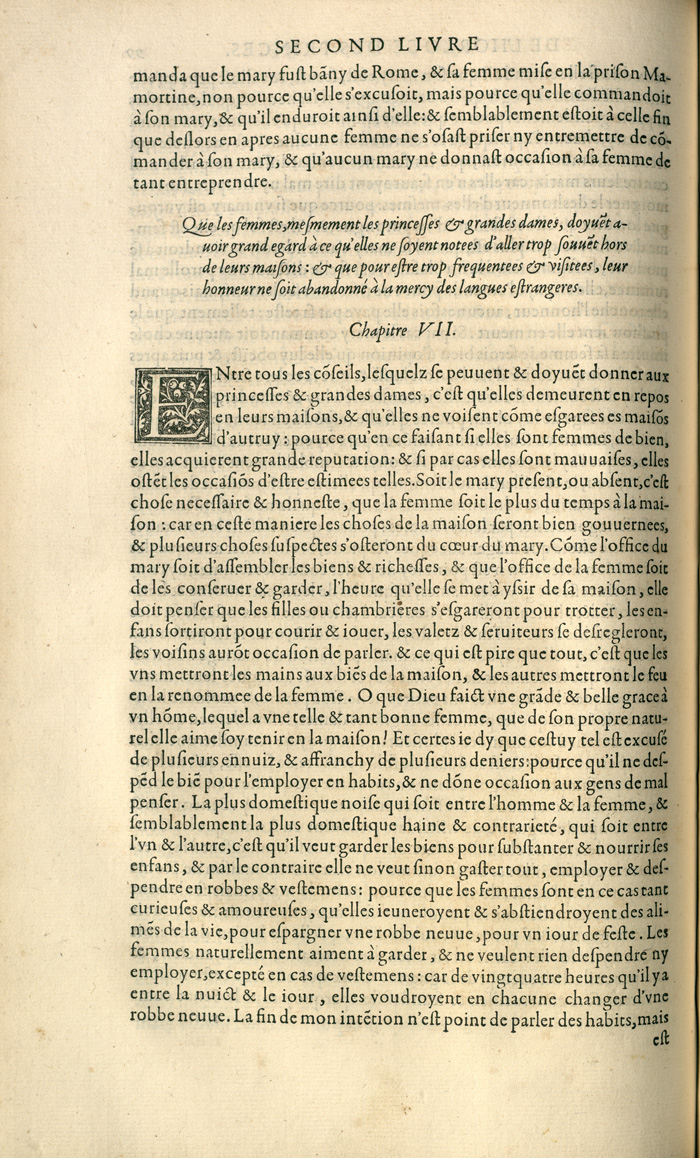 SECOND LIVRE
manda que le mary fuſt bãny de Rome, & ſa femme miſe en la priſon Ma-
mortine, non pource qu'elle s'excuſoit, mais pource qu'elle commandoit
à ſon mary, & qu'il enduroit ainſi d'elle: & ſemblablement eſtoit à celle fin
que deſlors en apres aucune femme ne s'oſaſt priſer ny entremettre de cõ-
mander à ſon mary, & qu'aucun mary ne donnaſt occaſion à ſa femme de
tant entreprendre.
Que les femmes, meſmement les princeſſes & grandes dames, doyuẽt a-
uoir grand egard à ce qu'elles ne ſoyent notees d'aller trop ſouuẽt hors
de leurs maiſons : & que pour eſtre trop frequentees & viſitees, leur
honneur ne ſoit abandonné à la mercy des langues eſtrangeres.
Chapitre VII.
ENtre tous les cõſeils, leſquelz ſe peuuent & doyuẽt donner aux
princeſſes & grandes dames, c'eſt qu'elles demeurent en repos
en leurs maiſons, & qu'elles ne voiſent cõme eſgarees es maiſõs
d'autruy : pource qu'en ce faiſant ſi elles ſont femmes de bien,
elles acquierent grande reputation: & ſi par cas elles ſont mauuaiſes, elles
oſtẽt les occaſiõs d'eſtre eſtimees telles. Soit le mary preſent, ou abſent, c'eſt
choſe neceſſaire & honneſte, que la femme ſoit le plus du temps à la mai-
ſon : car en ceſte maniere les choſes de la maiſon ſeront bien gouuernees,
& pluſieurs choſes ſuſpectes s'oſteront du cœur du mary. Cõme l'office du
mary ſoit d'aſſembler les biens & richeſſes, & que l'office de la femme ſoit
de les conſeruer & garder, l'heure qu'elle ſe met à yſſir de ſa maiſon, elle
doit penſer que les filles ou chambrieres s'eſgareront pour trotter, les en-
fans ſortiront pour courir & iouer, les valetz & ſeruiteurs ſe deſregleront,
les voiſins aurõt occaſion de parler. & ce qui eſt pire que tout, c'eſt que les
vns mettront les mains aux biẽs de la maiſon, & les autres mettront le feu
en la renommee de la femme. O que Dieu faict vne grãde & belle grace à
vn hõme, lequel a vne telle & tant bonne femme, que de ſon propre natu-
rel elle aime ſoy tenir en la maiſon! Et certes ie dy que ceſtuy tel eſt excuſé
de pluſieurs ennuiz, & affranchy de pluſieurs deniers: pource qu'il ne deſ-
pẽd le biẽ pour l'employer en habits, & ne dõne occaſion aux gens de mal
penſer. La plus domeſtique noiſe qui ſoit entre l'homme & la femme, &
ſemblablement la plus domeſtique haine & contrarieté, qui ſoit entre
l'vn & l'autre, c'eſt qu'il veut garder les biens pour ſubſtanter & nourrir ſes
enfans, & par le contraire elle ne veut ſinon gaſter tout, employer & deſ-
pendre en robbes & veſtemens : pource que les femmes ſont en ce cas tant
curieuſes & amoureuſes, qu'elles ieuneroyent & s'abſtiendroyent des ali-
mẽs de la vie, pour eſpargner vne robbe neuue, pour vn iour de feſte. Les
femmes naturellement aiment à garder, & ne veulent rien deſpendre ny
employer, excepté en cas de veſtemens : car de vingtquatre heures qu'il y a
entre la nuict & le iour, elles voudroyent en chacune changer d'vne
robbe neuue. La fin de mon intẽtion n'eſt point de parler des habits, mais
eſt